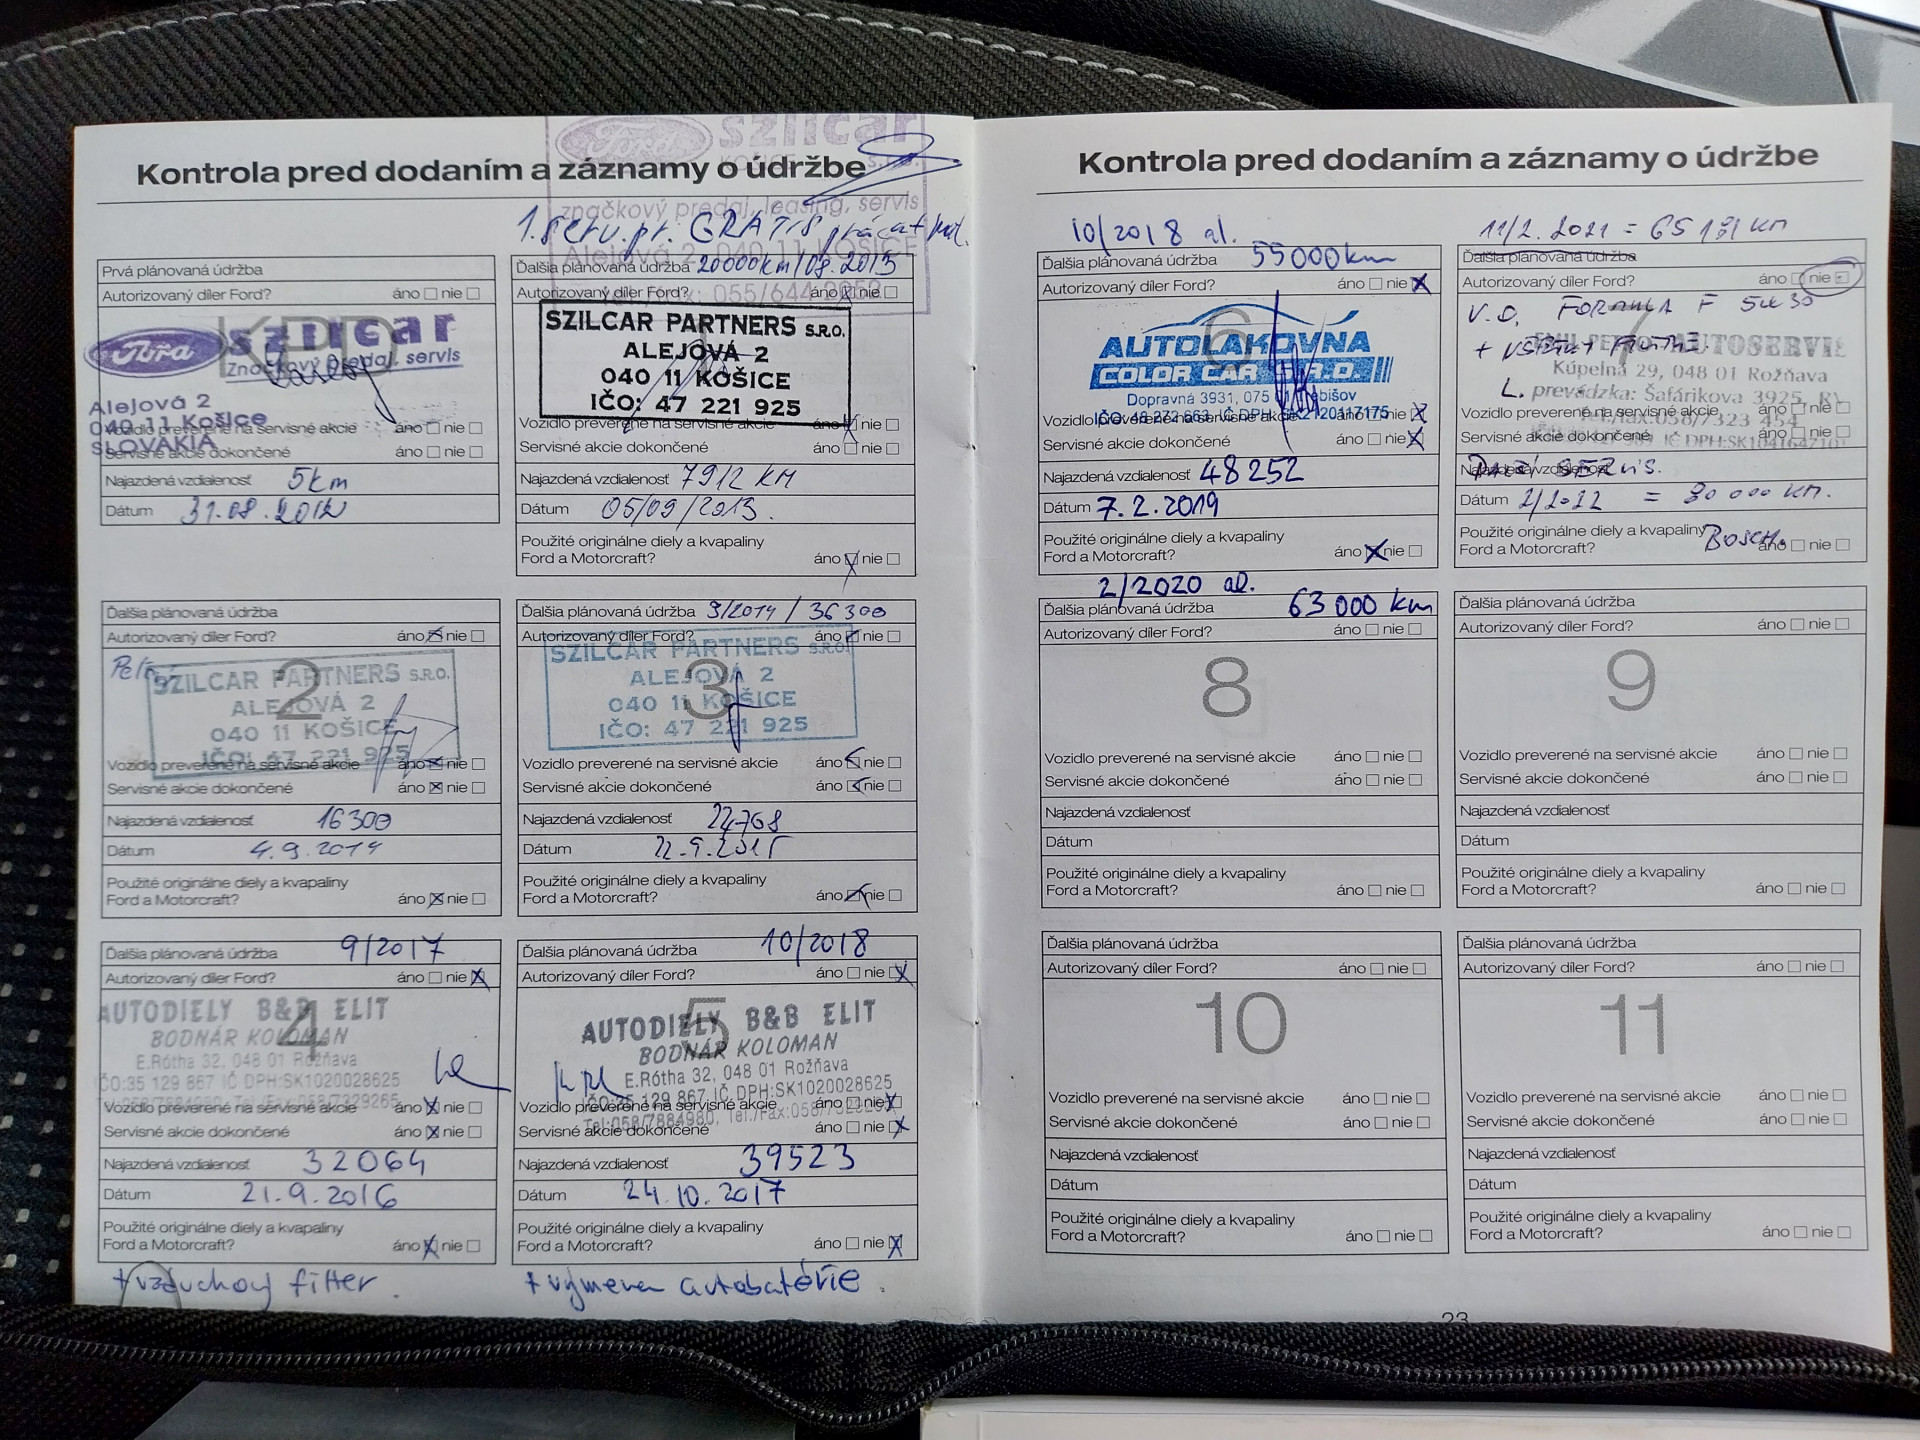 Kontrola pred dodaním a záznamy o údržbe
szilcar
KOŠICE s.r.o.
značkový predaj, leasing, servis
1. serv. pr. GRATIS
Alejová 2, 040 11 KOŠICE
Prvá plánovaná údržba
Autorizovaný díler Ford? áno nie
KPD
Ford szilcar
Značkový predaj, servis
Alejová 2
040 11 Košice
SLOVAKIA
Vozidlo preverené na servisné akcie áno nie
Servisné akcie dokončené áno nie
Najazdená vzdialenosť 5 km
Dátum 31.08.2012
Ďalšia plánovaná údržba 20000km/09.2013
Autorizovaný díler Ford? áno nie
1
SZILCAR PARTNERS S.R.O.
ALEJOVÁ 2
040 11 KOŠICE
IČO: 47 221 925
Vozidlo preverené na servisné akcie áno nie
Servisné akcie dokončené áno nie
Najazdená vzdialenosť 7912 KM
Dátum 05/09/2013.
Použité originálne diely a kvapaliny
Ford a Motorcraft? áno nie
Ďalšia plánovaná údržba
Autorizovaný díler Ford? áno nie
2
SZILCAR PARTNERS S.R.O.
ALEJOVÁ 2
040 11 KOŠICE
IČO: 47 221 925
Vozidlo preverené na servisné akcie áno nie
Servisné akcie dokončené áno nie
Najazdená vzdialenosť 16300
Dátum 4.9.2014
Použité originálne diely a kvapaliny
Ford a Motorcraft? áno nie
Ďalšia plánovaná údržba 9/2014 / 36300
Autorizovaný díler Ford? áno nie
3
SZILCAR PARTNERS S.R.O.
ALEJOVÁ 2
040 11 KOŠICE
IČO: 47 221 925
Vozidlo preverené na servisné akcie áno nie
Servisné akcie dokončené áno nie
Najazdená vzdialenosť 22768
Dátum 22.9.2015
Použité originálne diely a kvapaliny
Ford a Motorcraft? áno nie
Ďalšia plánovaná údržba 9/2017
Autorizovaný díler Ford? áno nie
4
AUTODIELY B&B ELIT
BODNÁR KOLOMAN
E.Rótha 32, 048 01 Rožňava
IČO:35 129 867 IČ DPH:SK1020028625
Vozidlo preverené na servisné akcie áno nie
Servisné akcie dokončené áno nie
Najazdená vzdialenosť 32064
Dátum 21.9.2016
Použité originálne diely a kvapaliny
Ford a Motorcraft? áno nie
+ vzduchový filter.
Ďalšia plánovaná údržba 10/2018
Autorizovaný díler Ford? áno nie
5
AUTODIELY B&B ELIT
BODNÁR KOLOMAN
E.Rótha 32, 048 01 Rožňava
IČO:35 129 867 IČ DPH:SK1020028625
Vozidlo preverené na servisné akcie áno nie
Servisné akcie dokončené áno nie
Najazdená vzdialenosť 39523
Dátum 24.10.2017
Použité originálne diely a kvapaliny
Ford a Motorcraft? áno nie
+ výmena autobatérie.
Kontrola pred dodaním a záznamy o údržbe
10/2018 al.
Ďalšia plánovaná údržba 55000km
Autorizovaný díler Ford? áno nie
6
AUTOLAKOVNA
COLOR CAR S.R.O.
Dopravná 3931, 075 01 Trebišov
Vozidlo preverené na servisné akcie áno nie
Servisné akcie dokončené áno nie
Najazdená vzdialenosť 48252
Dátum 7.2.2019
Použité originálne diely a kvapaliny
Ford a Motorcraft? áno nie
11/2.2021 = 65 181 KM
Ďalšia plánovaná údržba
Autorizovaný díler Ford? áno nie
7
V.O. FORMULA F 5W30
AUTOSERVIS
Kúpeľná 29, 048 01 Rožňava
prevádzka: Šafárikova 3925, RV
Vozidlo preverené na servisné akcie áno nie
Servisné akcie dokončené áno nie
Najazdená vzdialenosť
Dátum 2/2022 = 80 000 KM.
Použité originálne diely a kvapaliny
Ford a Motorcraft? BOSCH. áno nie
2/2020 al.
Ďalšia plánovaná údržba 63000 km
Autorizovaný díler Ford? áno nie
8
Vozidlo preverené na servisné akcie áno nie
Servisné akcie dokončené áno nie
Najazdená vzdialenosť
Dátum
Použité originálne diely a kvapaliny
Ford a Motorcraft? áno nie
Ďalšia plánovaná údržba
Autorizovaný díler Ford? áno nie
9
Vozidlo preverené na servisné akcie áno nie
Servisné akcie dokončené áno nie
Najazdená vzdialenosť
Dátum
Použité originálne diely a kvapaliny
Ford a Motorcraft? áno nie
Ďalšia plánovaná údržba
Autorizovaný díler Ford? áno nie
10
Vozidlo preverené na servisné akcie áno nie
Servisné akcie dokončené áno nie
Najazdená vzdialenosť
Dátum
Použité originálne diely a kvapaliny
Ford a Motorcraft? áno nie
Ďalšia plánovaná údržba
Autorizovaný díler Ford? áno nie
11
Vozidlo preverené na servisné akcie áno nie
Servisné akcie dokončené áno nie
Najazdená vzdialenosť
Dátum
Použité originálne diely a kvapaliny
Ford a Motorcraft? áno nie
23